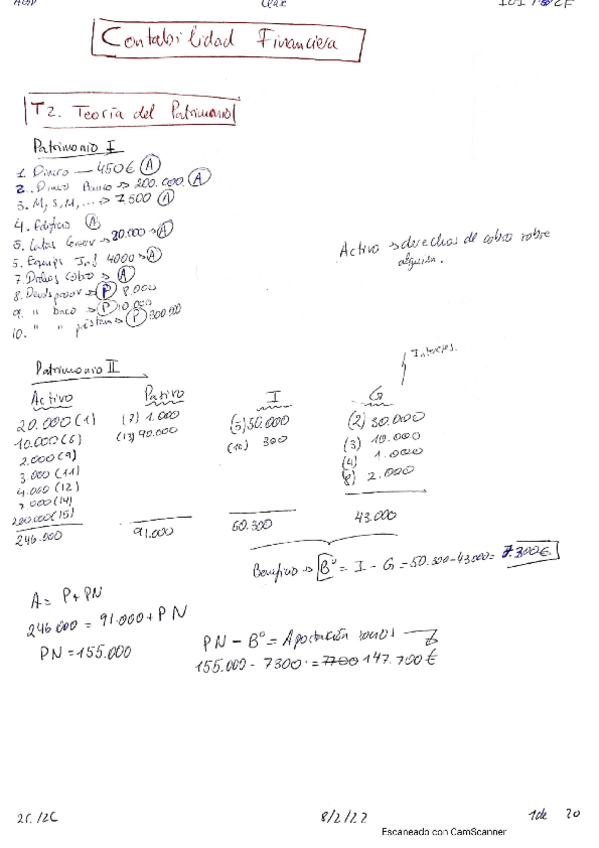 Contabilidad Financiera
T2. Teoría del Patrimonio
Patrimonio I
1. Dinero — 450€ (A)
2. Dinero Banco → 200.000. (A)
3. M, S, M, ... → 7.500 (A)
4. Edificio (A)
5. → 20.000 → (A)
5. Equips Inf 4000 → (A)
7. cobro → (A)
8. → (P) 8.000
9. " banco → (P) 10.000
10. " " → (P)
Activo → derechos de cobro sobre
alguien.
Patrimonio II
Intereses.
Activo Pasivo I G
20.000 (1) (7) 1.000 (5) 50.000 (2) 30.000
10.000 (6) (13) 90.000 (10) 300 (3) 10.000
2.000 (9) (4) 1.000
3.000 (11) (8) 2.000
4.000 (12)
(14)
200.000 (15)
246.000 91.000 50.300 43.000
Beneficio → Bº = I - G = 50.300 - 43.000 = 7.300€.
A = P + PN
246.000 = 91.000 + PN
PN = 155.000
PN - Bº = Aportación socios
155.000 - 7300 = 147.700 €
2C 8/2/22 1 de 20
Escaneado con CamScanner